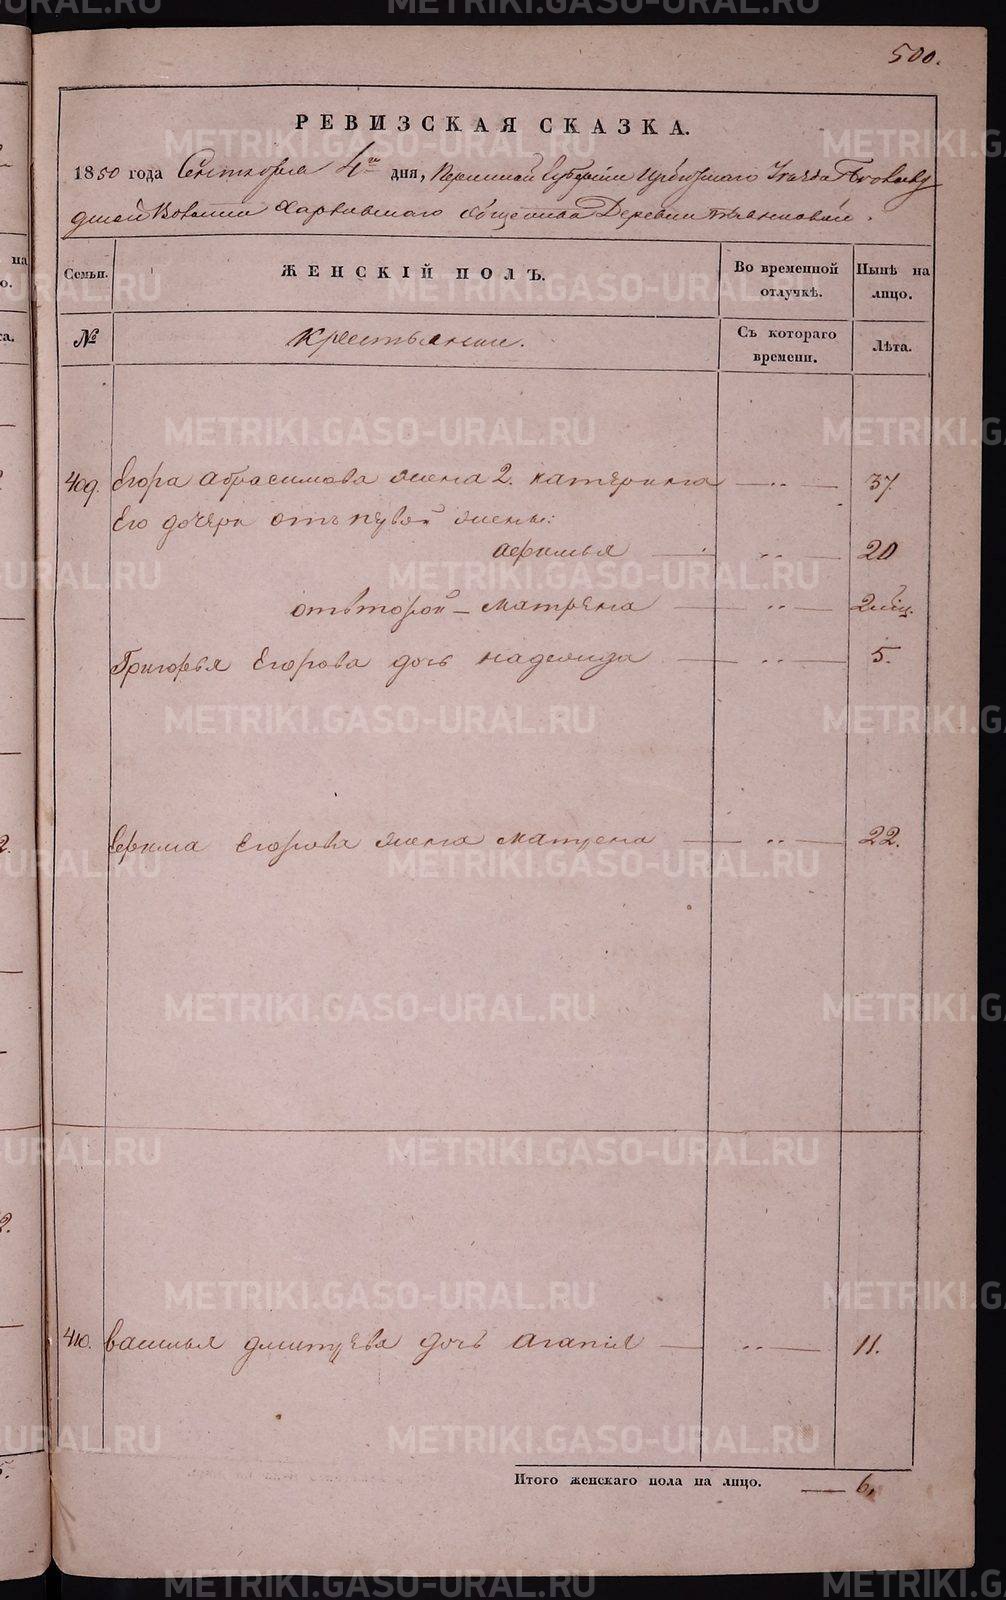 500.
РЕВИЗСКАЯ СКАЗКА.
1850 года Сентября 4го дня, Пермской Губернии Ирбитскаго Уезда
Волости Харловскаго общества Деревни
Семьи. ЖЕНСКІЙ ПОЛЪ. Во временной отлучкѣ. Нынѣ на лицо.
№ Крестьянки. Съ котораго времени. Лѣта.
409. Егора Абрасимова жена 2. катерина — ·· — 37.
Его дочери отъ первой жены:
афимья — ·· — 20
отъ второй – матрена — ·· — 2 мѣц.
Григорья Егорова дочь надежда — ·· — 5.
Ефима Егорова жена матрена — ·· — 22.
410. василья дмитрева дочь агапія — ·· — 11.
Итого женскаго пола на лицо. — 6.
METRIKI.GASO-URAL.RU